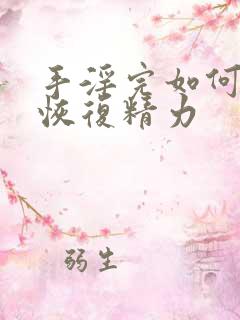 手淫完如何
恢復精力
弱生